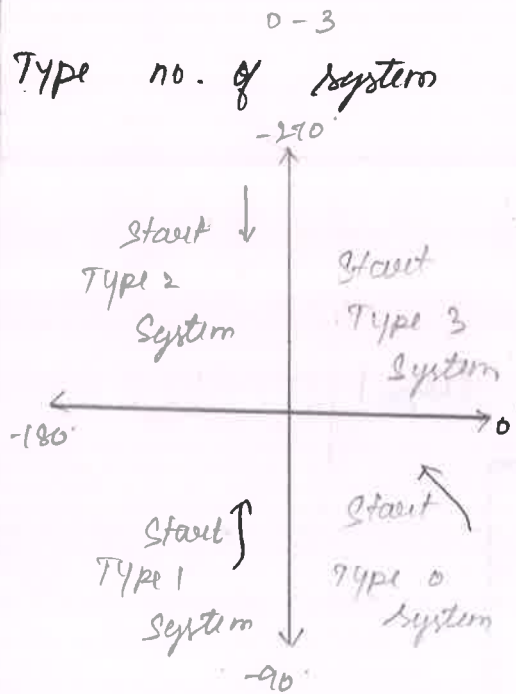 0-3
Type no. of system
-270°
Start
Type 2
System
Start
Type 3
System
-180°
0
Start
Type 1
System
Start
Type 0
System
-90°